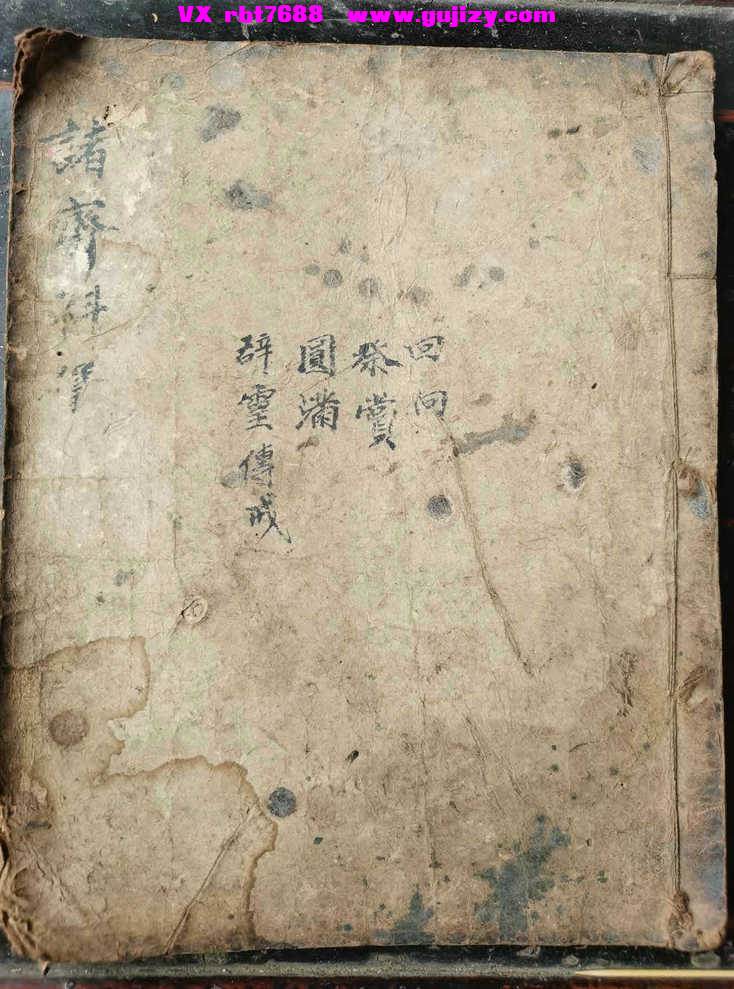 VX rbt7688 www.gujizy.com
回向
祭賞
圓滿
辞靈傳戒
諸齋科